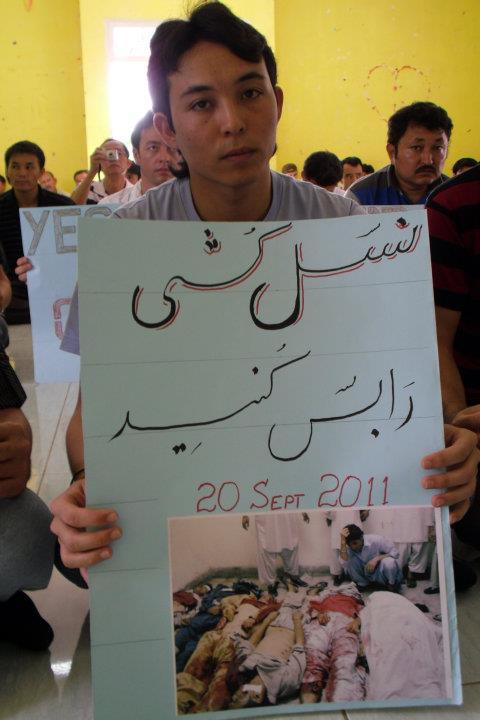 YES
نسل کُشی
رَا بس کُنِید
20 SEPT 2011